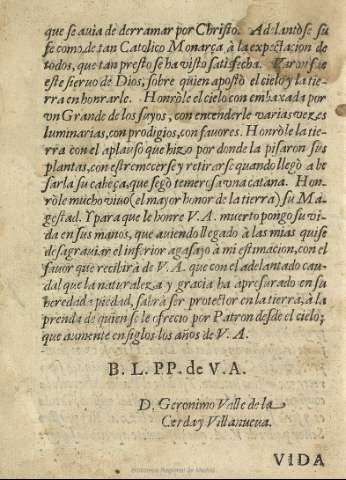 que se auia de derramar por Christo. Adelantòse su
fe como de tan Catolico Monarça, à la expectacion de
todos, que tan presto se ha visto satisfecha. Varon fue
este sieruo de Dios, sobre quien apostò el cielo y la tie-
rra en honrarle. Honròle el cielo con embaxada por
vn Grande de los suyos, con encenderle varias vezes
luminarias, con prodigios, con fauores. Honròle la tie-
rra con el aplauso que hizo por donde la pisaron sus
plantas, con estremecerse y retirarse quando llegò a be
sarla su cabeça, que segò temerosa vna catana. Hon-
ròle mucho viuo (el mayor honor de la tierra) su Ma-
gestad. Y para que le honre V. A. muerto pongo su vi-
da en sus manos, que auiendo llegado à las mias quise
desagrauiar el inferior agasajo à mi estimacion, con el
fauor que recibirà de V. A. que con el adelantado cau-
dal que la naturaleza y gracia ha apresurado en su
heredada piedad, sabrà ser protector en la tierra, à la
prenda de quien se le ofrecio por Patron desde el cielo;
que aumente en siglos los años de V. A.
B. L. PP. de V. A.
D. Geronimo Valle de la
Cerda y Villanueua.
VIDA
Biblioteca Regional de Madrid